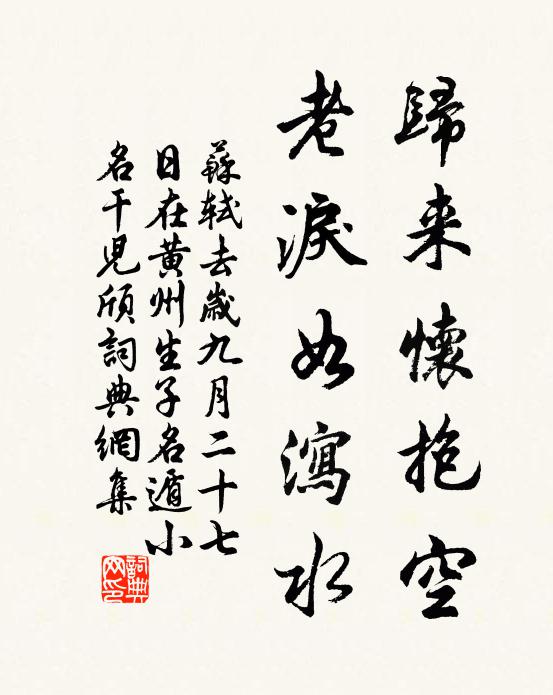 歸来懷抱空
老淚如瀉水
蘇軾去歲九月二十七
日在黄州生子名遁小
名干児頎詞典網集
詞典网印